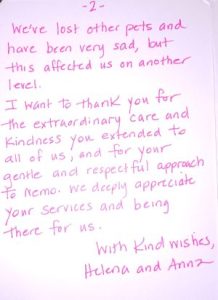 -2-
We've lost other pets and
have been very sad, but
this affected us on another
level.
I want to thank you for
the extraordinary care and
kindness you extended to
all of us, and for your
gentle and respectful approach
to Nemo. We deeply appreciate
your services and being
there for us.
With Kind wishes,
Helena and Anna